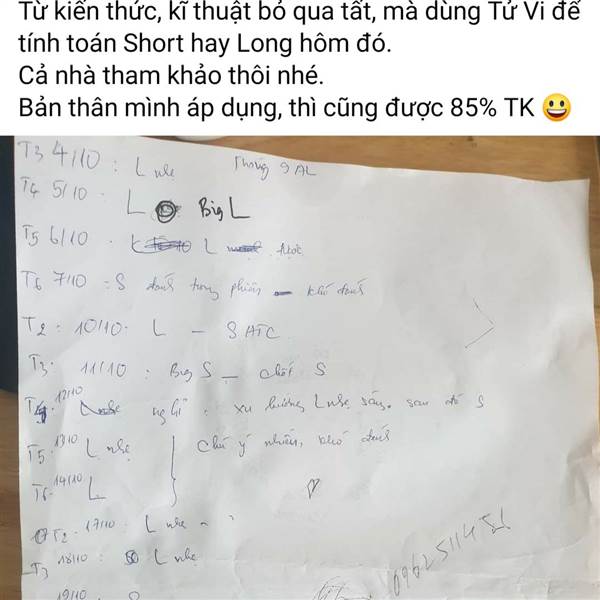 Từ kiến thức, kĩ thuật bỏ qua tất, mà dùng Tử Vi để
tính toán Short hay Long hôm đó.
Cả nhà tham khảo thôi nhé.
Bản thân mình áp dụng, thì cũng được 85% TK 😃
T3 4/10 : L nhẹ Tháng 9 AL
T4 5/10 . L Big L
T5 6/10 . L được
T6 7/10 : S đánh trong phiên – khó đánh
T2 : 10/10 . L – S ATC
T3 . 11/10 : Big S – chốt S
T4 12/10 nghỉ : xu hướng L nhẹ sáng, sau đó S
T5 . 13/10 L nhẹ Chú ý nhiên, khó đánh
T6 . 14/10 L
T2 . 17/10 . L nhẹ –
T3 18/10 L nhẹ
19/10 S